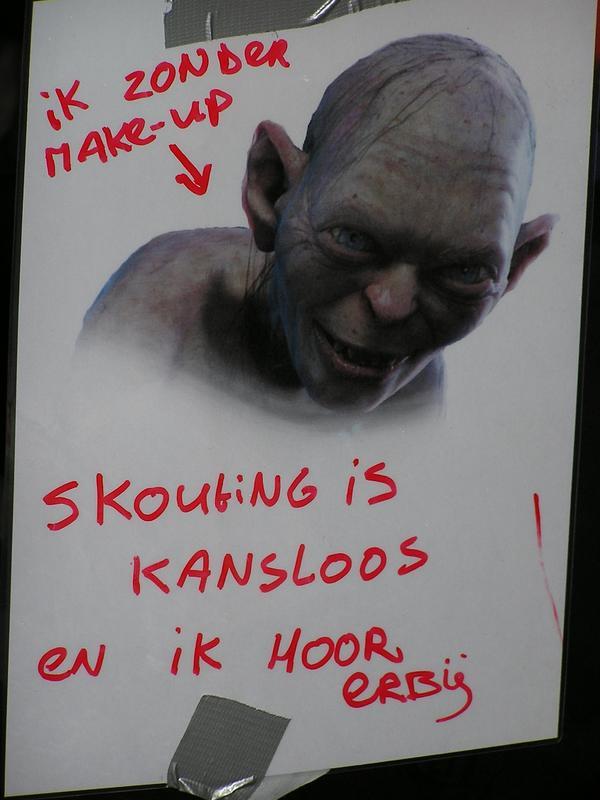 iK ZONDER
MAKE-UP
SKOUtiNG iS
KANSLOOS
eN iK HOOR
eRBij